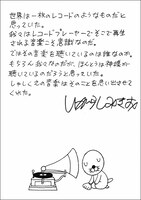 世界は一枚のレコードのようなものだと
思っていた。
我々はレコードプレーヤーでそこで再生
される音楽こそ意識なのだ。
ではその音楽を聴いているのは誰なのか。
もちろん我々なのだが、ほんとうは神様が
聴いているのだろうと思っていた。
しゃしくえの音楽はそのことを思い出させて
くれた。
いがらしみきお